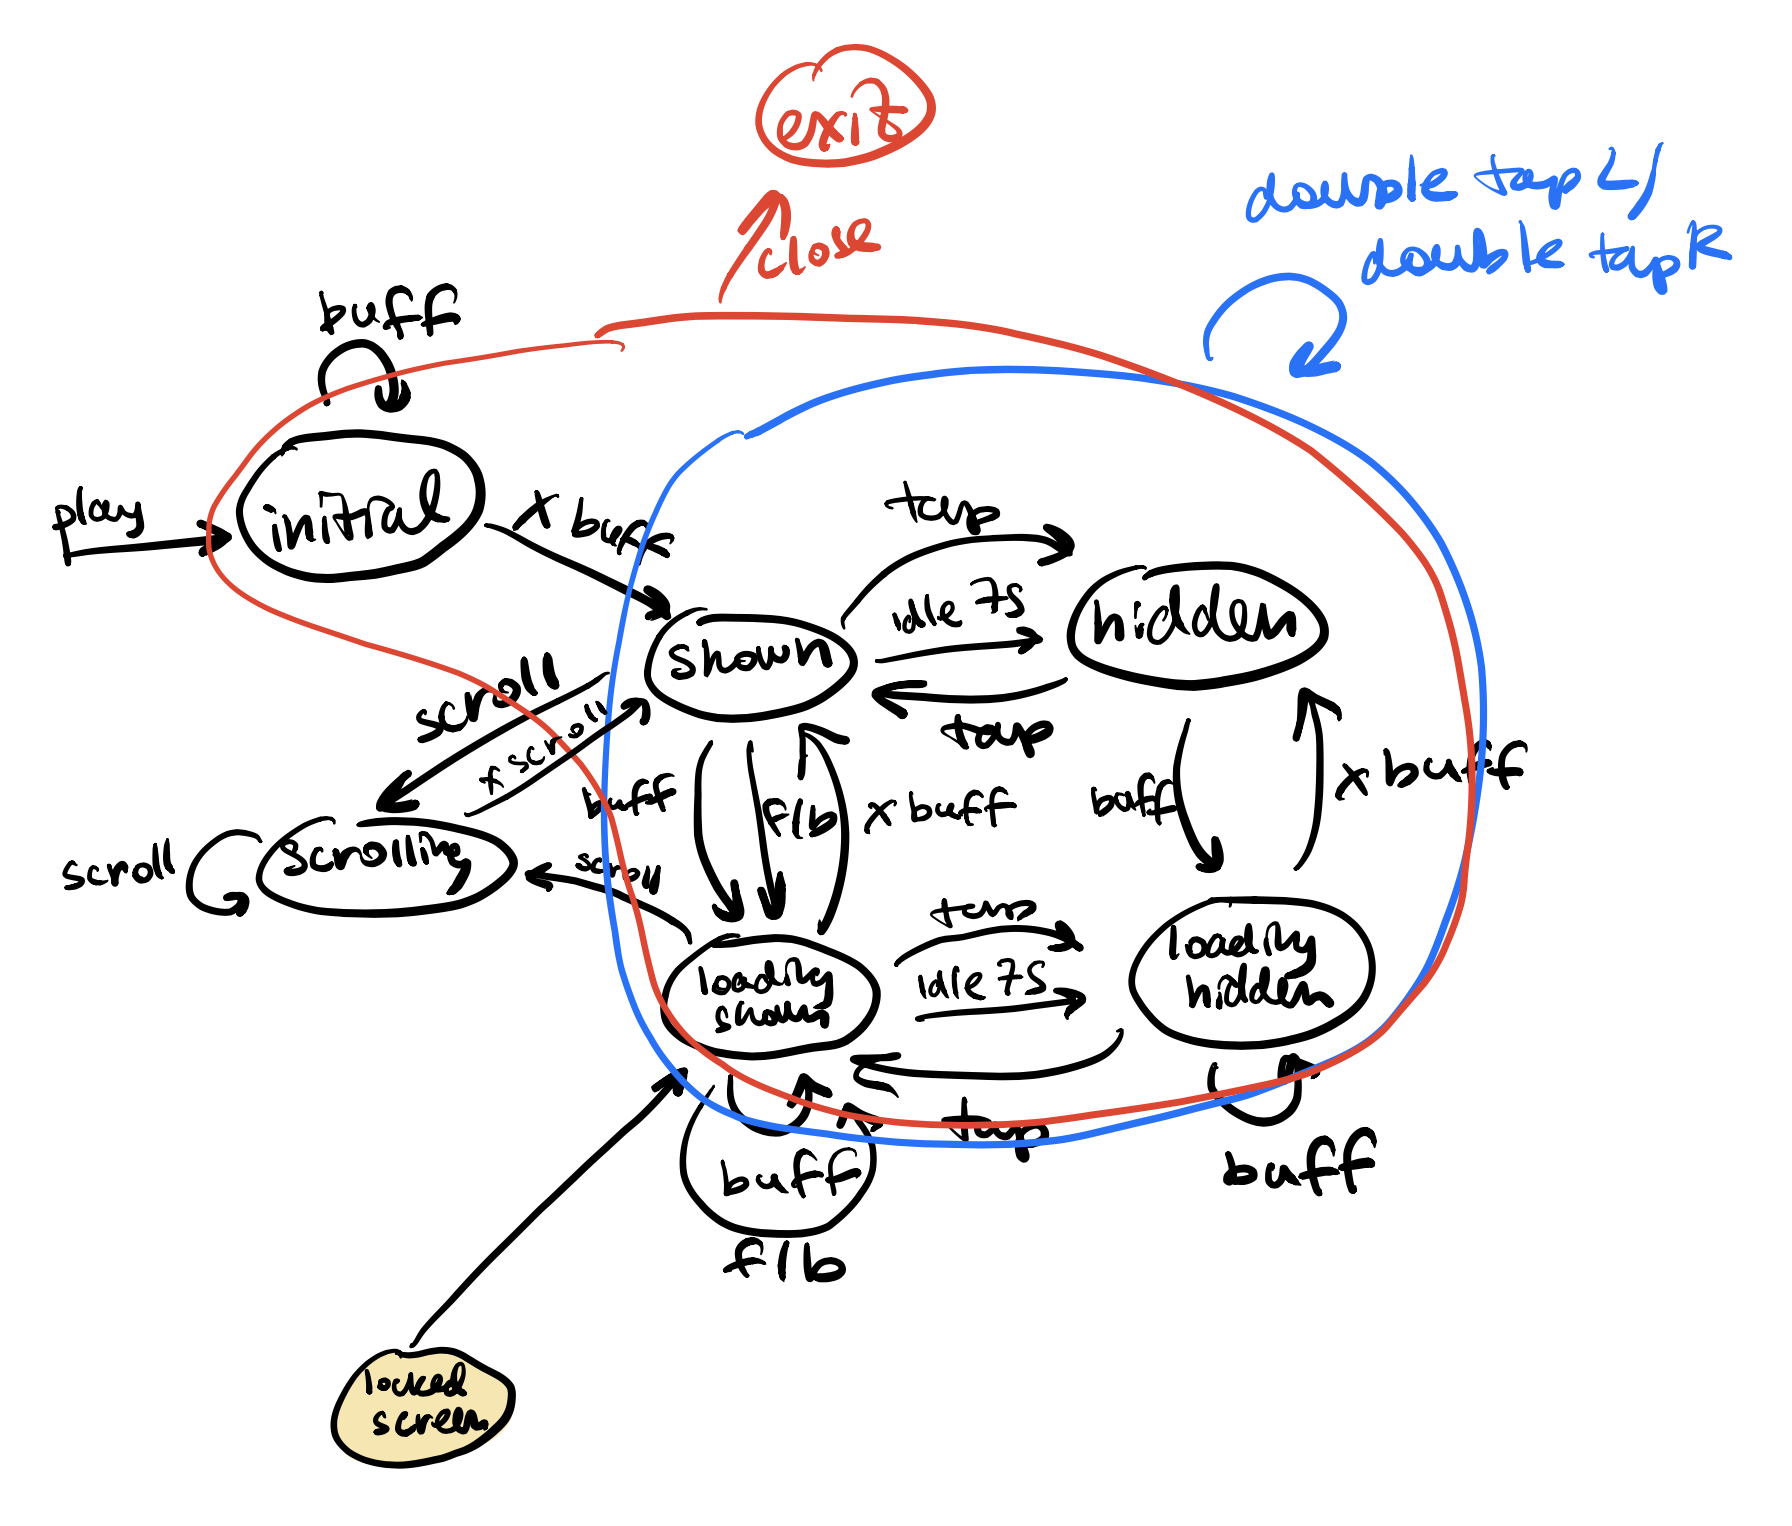 exit
close
double tap L/
double tap R
buff
initial
play
x buff
tap
idle 7s
hidden
shown
tap
scroll
x scroll
buff
f/b
x buff
buff
x buff
scrolling
scroll
scroll
tap
idle 7s
loading
shown
loading
hidden
tap
buff
f/b
buff
locked
screen